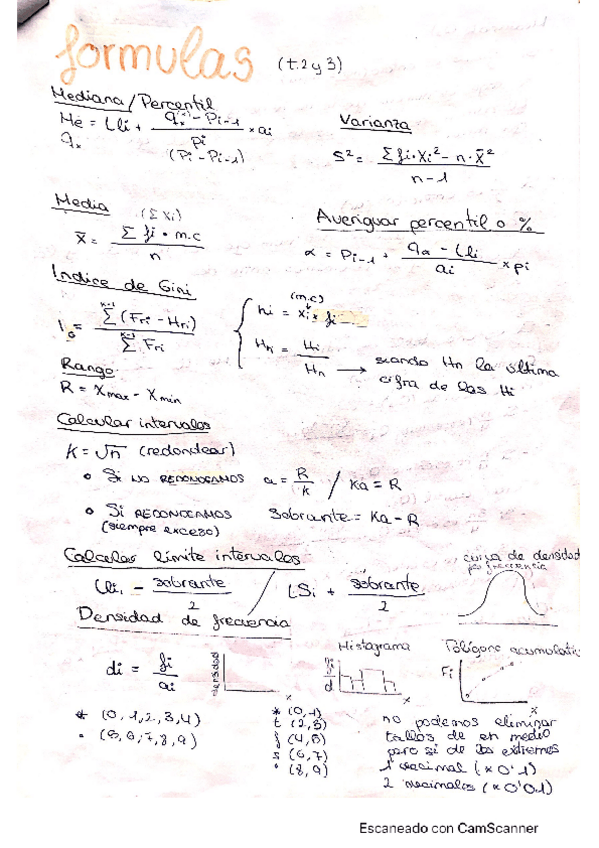 formulas (t.2 y 3)
Mediana/Percentil
Me = Lli + qx - Pi-1 / pi × ai
qx (Pi - Pi-1)
Varianza
S² = Σ fi·xi² - n·x̄² / n-1
Media (Σ xi)
x̄ = Σ fi · m.c / n
Averiguar percentil o %
α = Pi-1 + qα - Lli / ai × pi
Indice de Gini
IG = Σ (Fri - Hri) / Σ Fri
k-1
k-1
(m.c)
hi = xi × fi
Hri = Hi / Hn → siendo Hn la última
cifra de las Hi
Rango
R = xmax - xmin
Calcular intervalos
K = √n (redondear)
• Si NO REDONDEAMOS a = R/k / Ka = R
• Si REDONDEAMOS Sobrante = Ka - R
(siempre exceso)
Calcular límite intervalos
Lli - sobrante / 2 / LSi + sobrante / 2
curva de densidad
por frecuencia
Densidad de frecuencia
di = fi / ai
densidad
x
Histograma
fi
d
x
Polígono acumulativo
Fi
x
* (0,1,2,3,4)
• (5,6,7,8,9)
* (0,1)
t (2,3)
f (4,5)
s (6,7)
• (8,9)
no podemos eliminar
tallos de en medio
pero si de los extremos
1 decimal (×0'1)
2 decimales (×0'01)
Escaneado con CamScanner